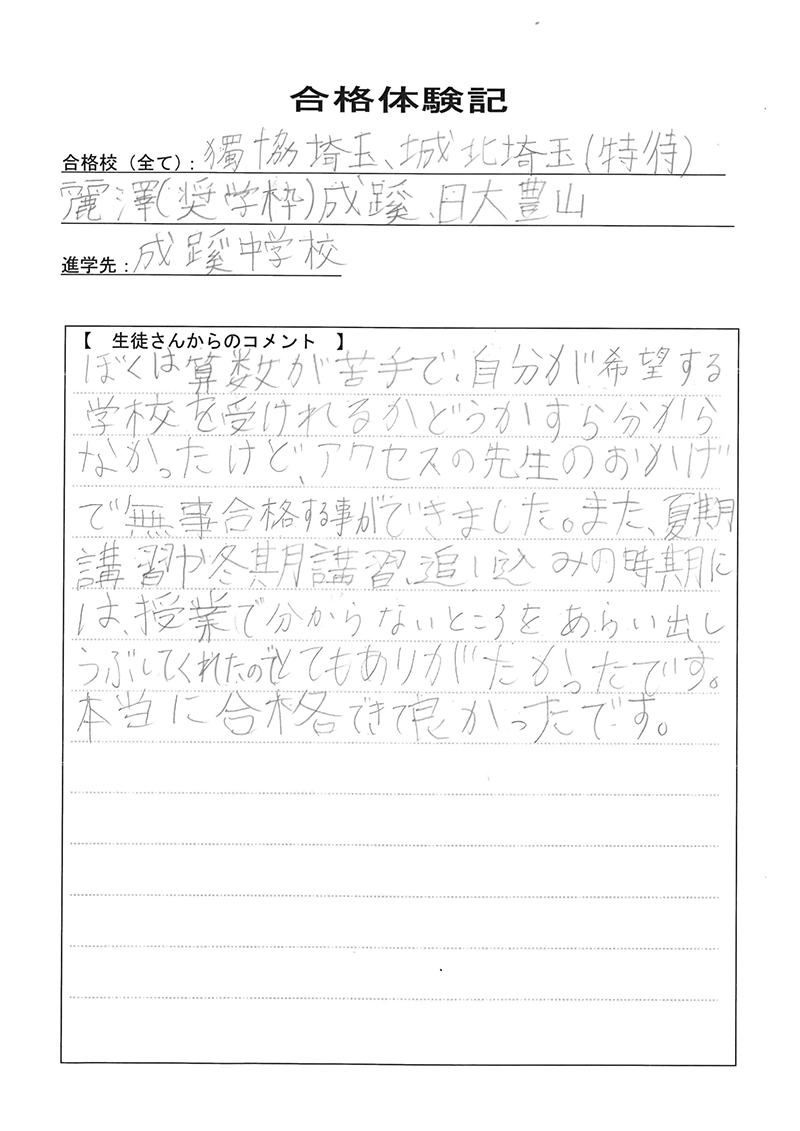 合格体験記
合格校（全て）：獨協埼玉、城北埼玉(特待)
麗澤(奨学枠)成蹊、日大豊山
進学先：成蹊中学校
【 生徒さんからのコメント 】
ぼくは算数が苦手で、自分が希望する
学校を受けれるかどうかすら分から
なかったけど、アクセスの先生のおかげ
で無事合格する事ができました。また、夏期
講習や冬期講習、追い込みの時期に
は、授業で分からないところをあらい出し
うぶしてくれたのでとてもありがたかったです。
本当に合格できて良かったです。